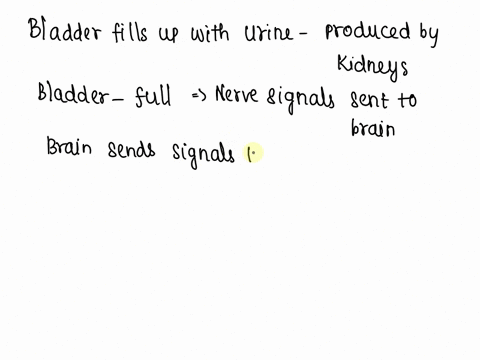 Bladder fills up with urine - produced by
Kidneys
Bladder - full => Nerve signals sent to
brain
Brain sends signals